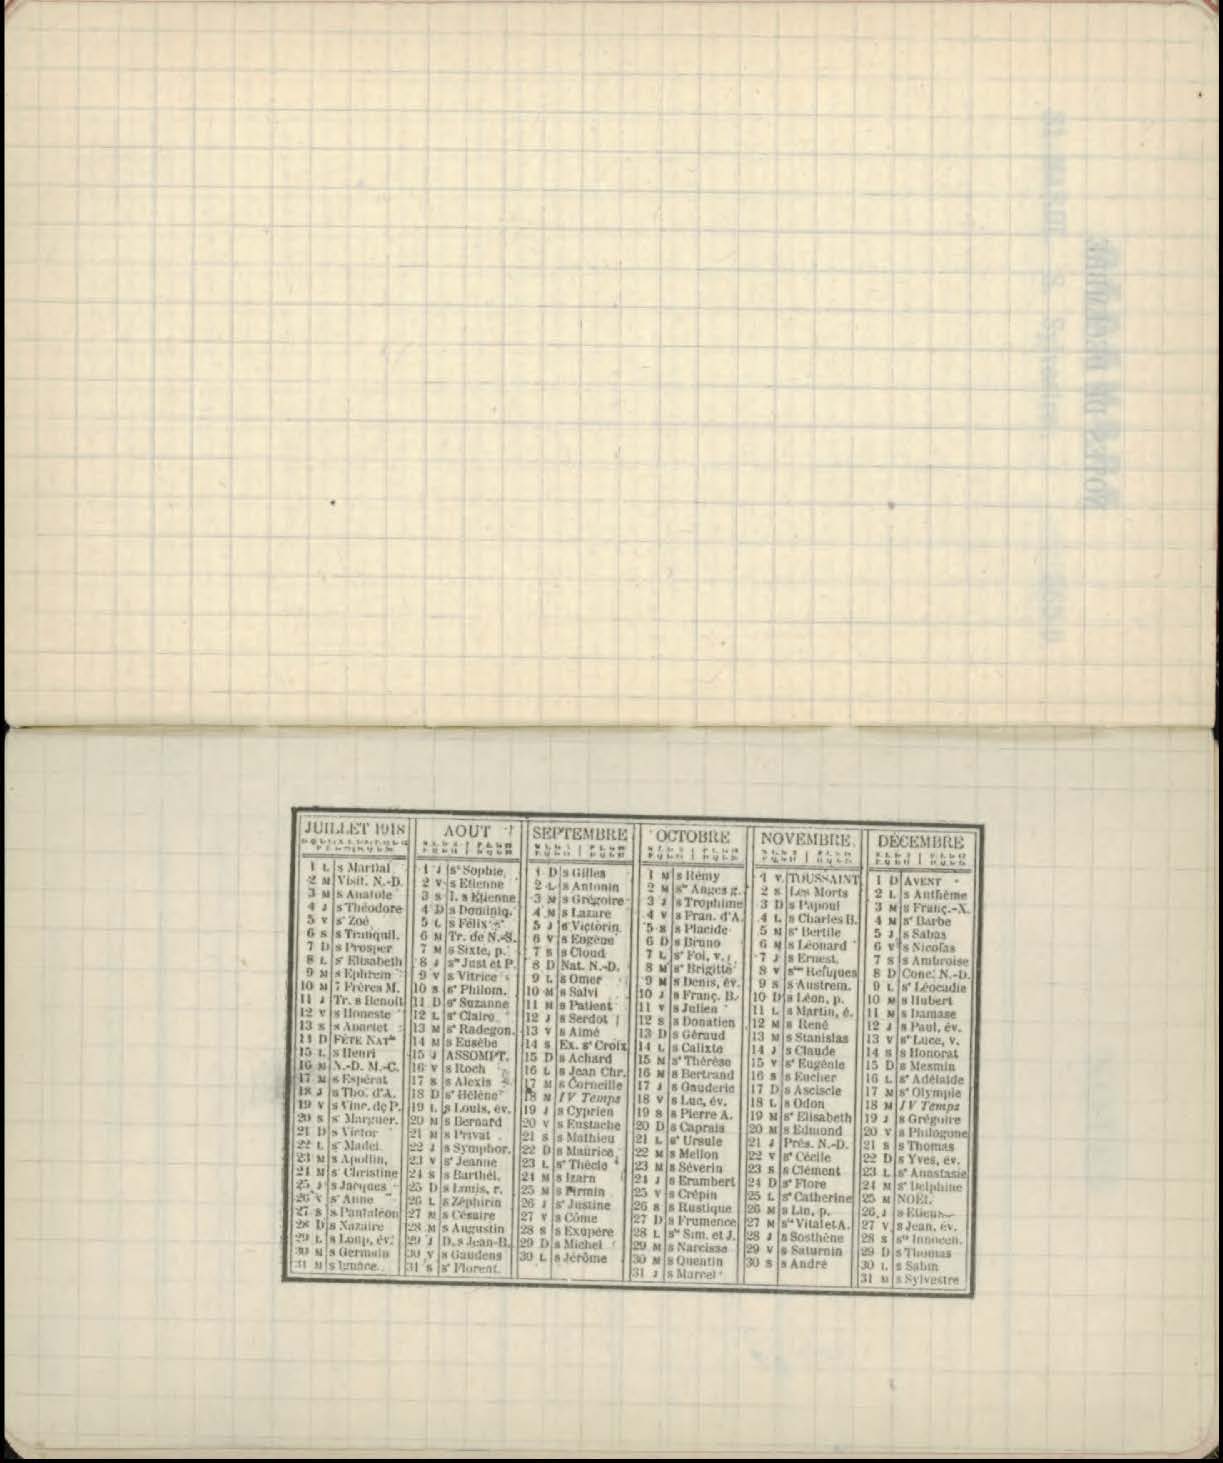 JUILLET 1918
1 L s Martial
2 M Visit. N.-D.
3 M s Anatole
4 J s Théodore
5 V sᵉ Zoé
6 S s Tranquil.
7 D s Prosper
8 L sᵉ Elisabeth
9 M s Ephrem
10 M 7 Frères M.
11 J Tr. s Benoît
12 V s Honeste
13 S s Anaclet
14 D FÊTE NATˡᵉ
15 L s Henri
16 M N.-D. M.-C.
17 M s Espérat
18 J s Tho. d'A.
19 V s Vinc. de P.
20 S sᵉ Marguer.
21 D s Victor
22 L sᵉ Madel.
23 M s Apollin.
24 M sᵉ Christine
25 J s Jacques
26 V sᵉ Anne
27 S s Pantaléon
28 D s Nazaire
29 L s Loup, év.
30 M s Germain
31 M s Ignace
AOUT
1 J sᵉ Sophie
2 V s Etienne
3 S I. s Etienne
4 D s Dominiq.
5 L s Félix
6 M Tr. de N.-S.
7 M s Sixte, p.
8 J sᵗˢ Just et P.
9 V s Vitrice
10 S sᵉ Philom.
11 D sᵉ Suzanne
12 L sᵉ Claire
13 M sᵉ Radegon.
14 M s Eusèbe
15 J ASSOMPT.
16 V s Roch
17 S s Alexis
18 D sᵉ Hélène
19 L s Louis, év.
20 M s Bernard
21 M s Privat
22 J s Symphor.
23 V sᵉ Jeanne
24 S s Barthél.
25 D s Louis, r.
26 L s Zéphirin
27 M s Césaire
28 M s Augustin
29 J D. s Jean-B.
30 V s Gaudens
31 S sᵉ Florent.
SEPTEMBRE
1 D s Gilles
2 L s Antonin
3 M s Grégoire
4 M s Lazare
5 J s Victorin
6 V s Eugène
7 S s Cloud
8 D Nat. N.-D.
9 L s Omer
10 M s Salvi
11 M s Patient
12 J s Serdot
13 V s Aimé
14 S Ex. sᵉ Croix
15 D s Achard
16 L s Jean Chr.
17 M s Corneille
18 M IV Temps
19 J s Cyprien
20 V s Eustache
21 S s Mathieu
22 D s Maurice
23 L sᵉ Thècle
24 M s Izarn
25 M s Firmin
26 J sᵉ Justine
27 V s Côme
28 S s Exupère
29 D s Michel
30 L s Jérôme
OCTOBRE
1 M s Rémy
2 M sᵗˢ Anges g.
3 J s Trophime
4 V s Fran. d'A.
5 S s Placide
6 D s Bruno
7 L sᵉ Foi, v.
8 M sᵉ Brigitte
9 M s Denis, év.
10 J s Franç. B.
11 V s Julien
12 S s Donatien
13 D s Géraud
14 L s Calixte
15 M sᵉ Thérèse
16 M s Bertrand
17 J s Gauderic
18 V s Luc, év.
19 S s Pierre A.
20 D s Caprais
21 L sᵉ Ursule
22 M s Mellon
23 M s Séverin
24 J s Erambert
25 V s Crépin
26 S s Rustique
27 D s Frumence
28 L sᵗˢ Sim. et J.
29 M s Narcisse
30 M s Quentin
31 J s Marcel
NOVEMBRE
1 V TOUSSAINT
2 S Les Morts
3 D s Papoul
4 L s Charles B.
5 M sᵉ Bertile
6 M s Léonard
7 J s Ernest
8 V sᵗᵉˢ Reliques
9 S s Austrem.
10 D s Léon, p.
11 L s Martin, é.
12 M s René
13 M s Stanislas
14 J s Claude
15 V sᵉ Eugénie
16 S s Eucher
17 D s Asciscle
18 L s Odon
19 M sᵉ Elisabeth
20 M s Edmond
21 J Prés. N.-D.
22 V sᵉ Cécile
23 S s Clément
24 D sᵉ Flore
25 L sᵉ Catherine
26 M s Lin, p.
27 M sᵗˢ Vital et A.
28 J s Sosthène
29 V s Saturnin
30 S s André
DÉCEMBRE
1 D AVENT
2 L s Anthème
3 M s Franç.-X.
4 M sᵉ Barbe
5 J s Sabas
6 V s Nicolas
7 S s Ambroise
8 D Conc. N.-D.
9 L sᵉ Léocadie
10 M s Hubert
11 M s Damase
12 J s Paul, év.
13 V sᵉ Luce, v.
14 S s Honorat
15 D s Mesmin
16 L sᵉ Adélaïde
17 M sᵉ Olympie
18 M IV Temps
19 J s Grégoire
20 V s Philogone
21 S s Thomas
22 D s Yves, év.
23 L sᵉ Anastasie
24 M sᵉ Delphine
25 M NOËL
26 J s Etienne
27 V s Jean, év.
28 S sᵗˢ Innocen.
29 D s Thomas
30 L s Sabin
31 M s Sylvestre